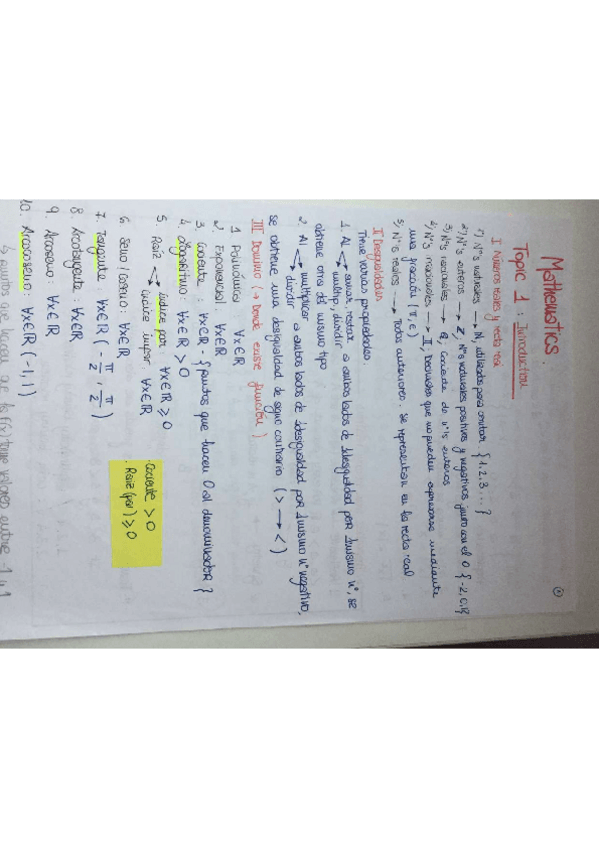 Mathematics.
Topic 1: Introduction
I Números reales y recta real
1) Nºs naturales → N, utilizados para contar {1, 2, 3, ... }
2) Nºs enteros → Z, Nºs naturales positivos y negativos junto con el 0 {-2, 0, 1}
3) Nºs racionales → Q, Cociente de nºs enteros
4) Nºs irracionales → II, Decimales que no pueden expresarse mediante
una fracción (π, e)
5) Nºs reales → Todos anteriores. Se representan en la recta real
II Desigualdades
Tiene varias propiedades.
1. Al sumar, restar a ambos lados de 1 desigualdad por 1 mismo nº, se
multip, dividir
obtiene otra del mismo tipo
2. Al multiplicar a ambos lados de 1 desigualdad por 1 mismo nº negativo,
dividir
se obtiene una desigualdad de signo contrario ( > → < )
III Dominio (→ Donde existe función)
1. Polinómica ∀x∈ℝ
2. Exponencial: ∀x∈ℝ
3. Cociente ∀x∈ℝ - { puntos que hacen 0 al denominador }
4. Logaritmo: ∀x∈ℝ > 0
5. Raíz índice par ∀x∈ℝ ≥ 0
índice impar. ∀x∈ℝ
· Cociente > 0
· Raíz (par) ≥ 0
6. Seno / Coseno: ∀x∈ℝ
7. Tangente ∀x∈ℝ (-π/2, π/2)
8. Arcotangente: ∀x∈ℝ
9. Arcoseno: ∀x∈ℝ
10. Arcocoseno: ∀x∈ℝ (-1, 1)
puntos que hacen que la fx tome valores entre -1 y 1